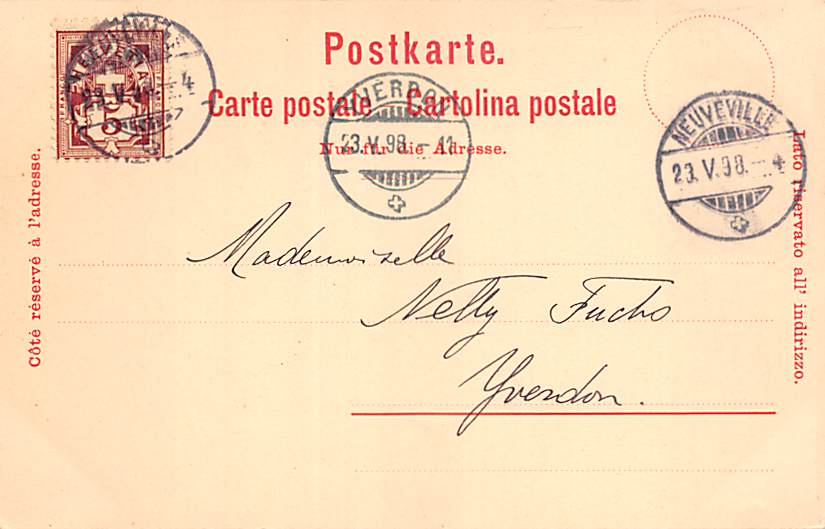 Postkarte.
Carte postale Cartolina postale
Nur für die Adresse.
Côté réservé à l'adresse.
Lato riservato all' indirizzo.
YVERDON
23.V.98.-11
NEUVEVILLE
23.V.98.-4
Mademoiselle
Nelly Fuchs
Yverdon.